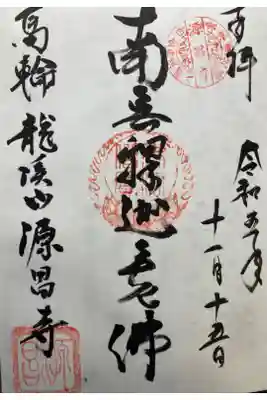 奉拝
令和五年
十一月十五日
南無釋迦牟尼佛
高輪 龍渓山源昌寺